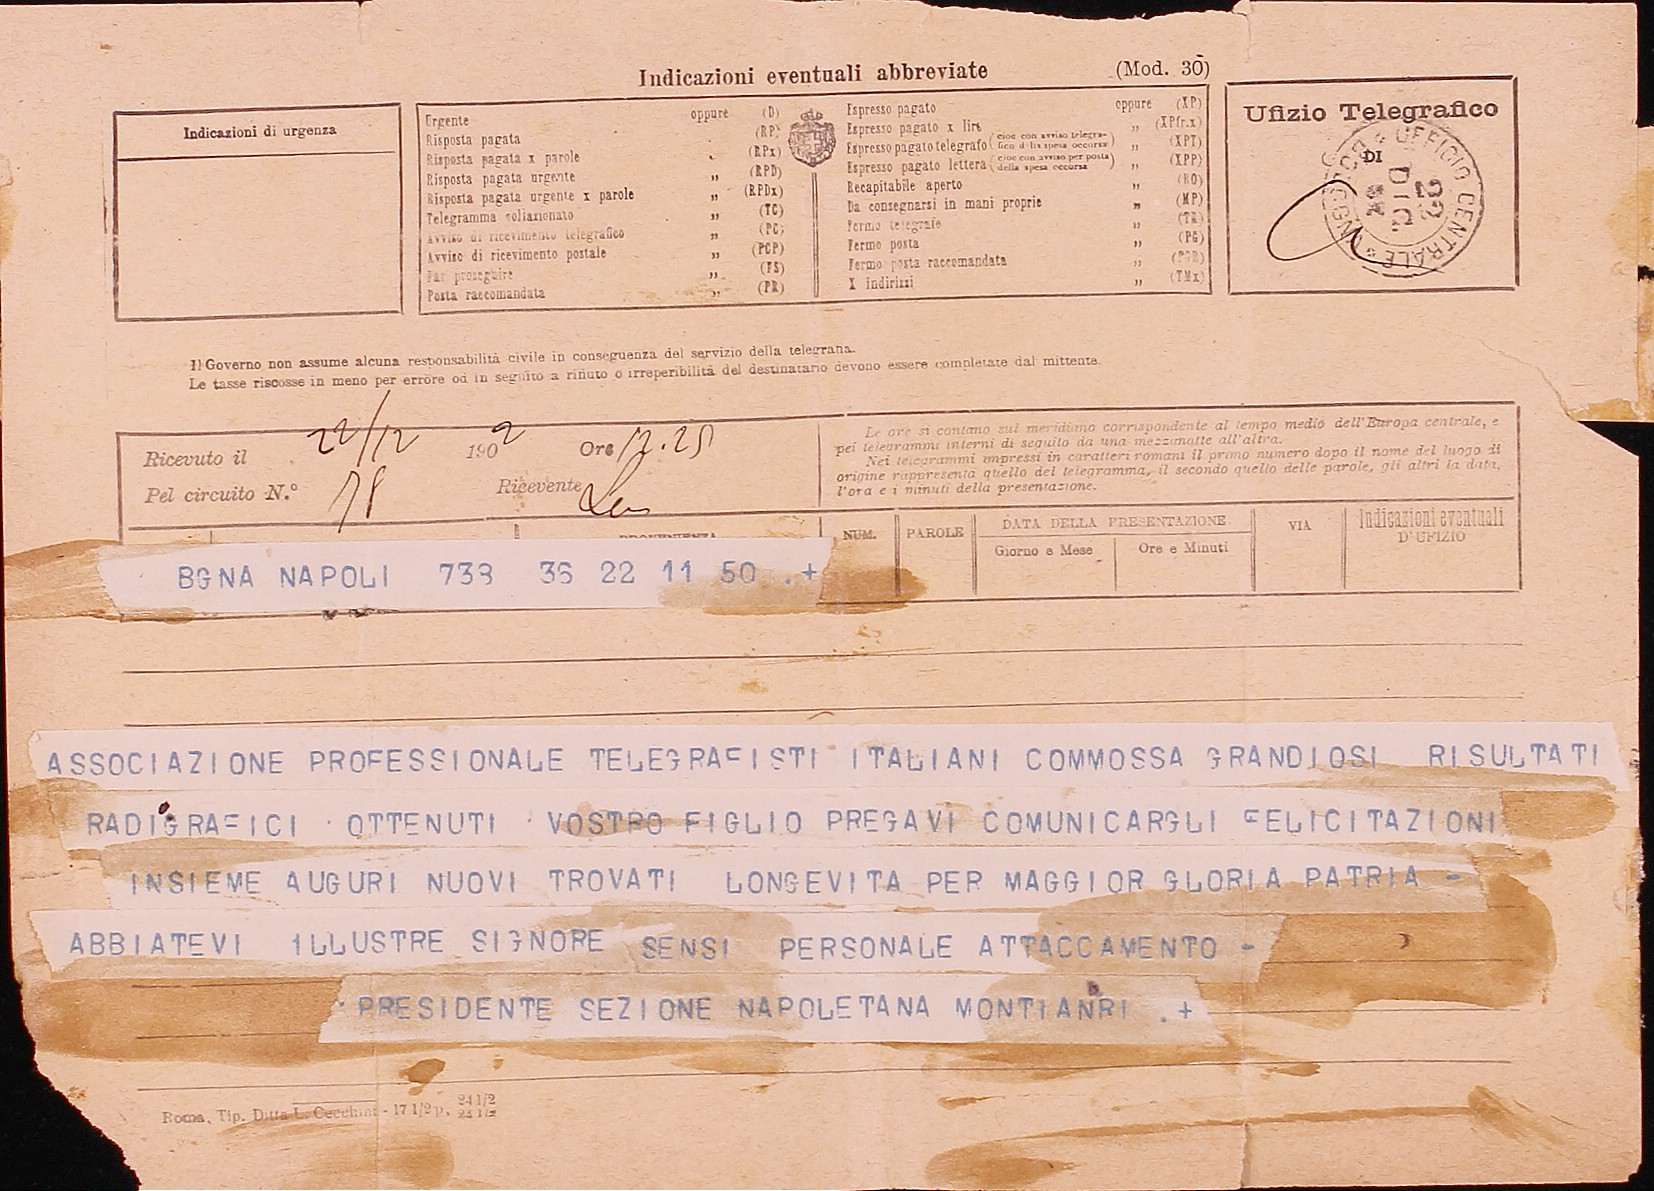 Indicazioni eventuali abbreviate (Mod. 30)
Indicazioni di urgenza
Urgente oppure (D)
Risposta pagata (RP)
Risposta pagata x parole „ (RPx)
Risposta pagata urgente „ (RPD)
Risposta pagata urgente x parole „ (RPDx)
Telegramma collazionato „ (TC)
Avviso di ricevimento telegrafico „ (PC)
Avviso di ricevimento postale „ (PCP)
Far proseguire „ (FS)
Posta raccomandata „ (PR)
Espresso pagato oppure (XP)
Espresso pagato x lire „ (XPfr.x)
Espresso pagato telegrafo (cioè con avviso telegra-fico della spesa occorsa) „ (XPT)
Espresso pagato lettera (cioè con avviso per posta della spesa occorsa) „ (XPP)
Recapitabile aperto „ (RO)
Da consegnarsi in mani proprie „ (MP)
Fermo telegrafo „ (TR)
Fermo posta „ (PG)
Fermo posta raccomandata „ (PGR)
X indirizzi „ (TMx)
Ufizio Telegrafico
DI
UFFICIO CENTRALE
22 DIC
Il Governo non assume alcuna responsabilità civile in conseguenza del servizio della telegrafia.
Le tasse riscosse in meno per errore od in seguito a rifiuto o irreperibilità del destinatario devono essere completate dal mittente.
Ricevuto il 22/12 1902 Ore 12.25
Pel circuito N.° 78 Ricevente
Le ore si contano sul meridiano corrispondente al tempo medio dell'Europa centrale, e
pei telegrammi interni di seguito da una mezzanotte all'altra.
Nei telegrammi impressi in caratteri romani il primo numero dopo il nome del luogo di
origine rappresenta quello del telegramma, il secondo quello delle parole, gli altri la data,
l'ora e i minuti della presentazione.
PROVENIENZA NUM. PAROLE DATA DELLA PRESENTAZIONE VIA Indicazioni eventuali
D'UFIZIO
Giorno e Mese Ore e Minuti
BGNA NAPOLI 738 36 22 11 50 .+
ASSOCIAZIONE PROFESSIONALE TELEGRAFISTI ITALIANI COMMOSSA GRANDIOSI RISULTATI
RADIGRAFICI OTTENUTI VOSTRO FIGLIO PREGAVI COMUNICARGLI FELICITAZIONI
INSIEME AUGURI NUOVI TROVATI LONGEVITA PER MAGGIOR GLORIA PATRIA -
ABBIATEVI ILLUSTRE SIGNORE SENSI PERSONALE ATTACCAMENTO -
PRESIDENTE SEZIONE NAPOLETANA MONTIANRI .+
Roma, Tip. Ditta L. Cecchini - 17 1/2 p. 24 1/2
24 1/2